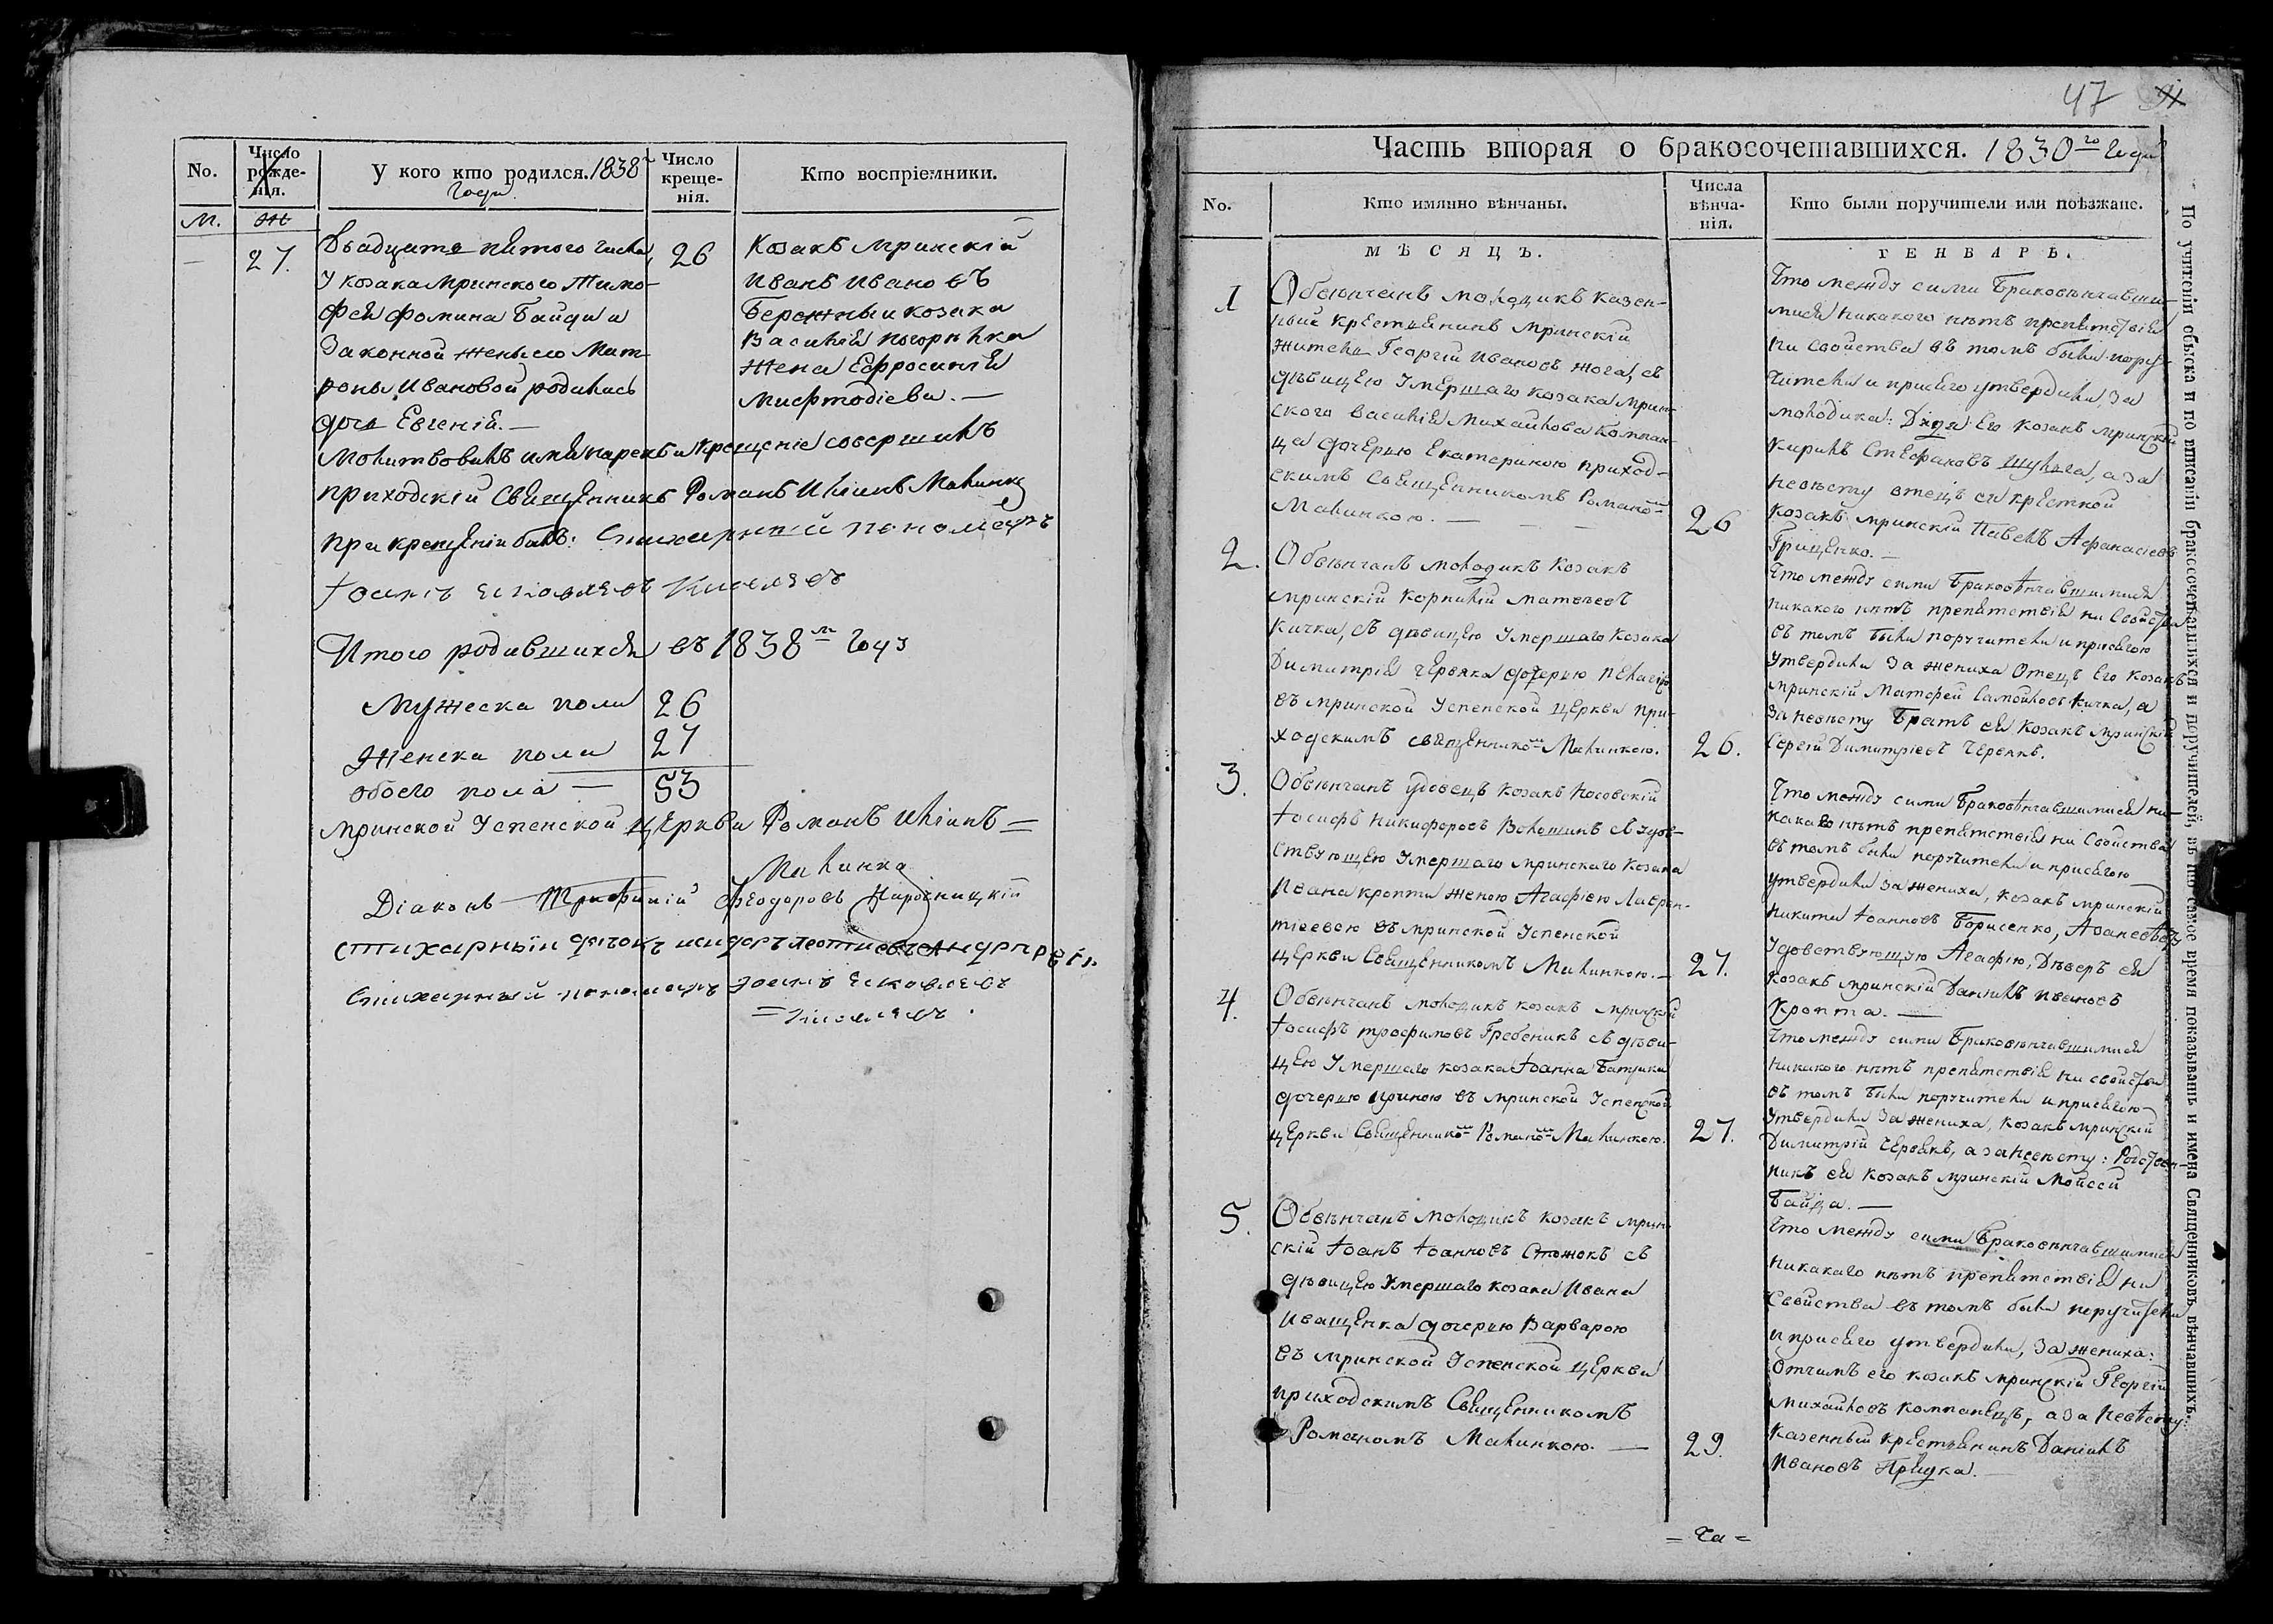 No.
Число рожде-нія.
У кого кто родился. 1838 года
Число креще-нія.
Кто воспріемники.
М.
Ж
27.
Двадцать пятого числа,
У козака мринского Тимо-
фея Фомина Байди и
Законной жены его Мат-
роны Ивановой родилась
дочь Евгенія. —
26
Козакъ мринскій
Иванъ Ивановъ
Бережный и козака
Василія
жена Ефросинія
Мефтодіева. —
Молитвовалъ имя нарекъ и крещеніе совершилъ
приходскій Священникъ Романъ Иліинъ Малинка
при крещеніи былъ: Стихарный пономарь
Итого родившихся въ 1838м году
Мужеска пола 26
Женска пола 27
обоего пола — 53
Мринской Успенской церкви Романъ Иліинъ =
Малинка
Діаконъ Трифилій Феодоровъ
стихарный дячокъ
Стихарный пономарь
47
Часть вторая о бракосочетавшихся. 1830го года
No.
Кто имянно вѣнчаны.
Числа вѣнча-нія.
Кто были поручители или поѣзжане.
МѢСЯЦЪ.
ГЕНВАРЬ.
1
Обвѣнчанъ молодикъ казен-
ный крестьянинъ мринскій
житель Георгій Ивановъ Жога, съ
дѣвицею умершаго козака мрин-
ского Василія Михайлова Компан-
ца дочерью Екатериною приход-
скимъ Священникомъ Романом
Малинкою. —
26
Что между сими браковѣнчавши-
мися никакого нѣтъ препятствія
ни свойства въ томъ были пору-
чители и присягою утвердили, за
молодика: Дядя его козакъ мринскій
Кирилъ Стефановъ Шульга, а за
невѣсту отецъ ея крестной
козакъ мринскій Павелъ Афанасіевъ
Грищенко. —
2.
Обвѣнчанъ молодикъ козакъ
мринскій Корнилій Матвѣевъ
Кичка, съ дѣвицею умершаго козака
Димитрія Червяка дочерью Пелагію
въ мринской Успенской церкви при-
ходскимъ священником Малинкою.
26.
Что между сими браковѣнчавшимися
никакого нѣтъ препятствія ни свойства
въ томъ были поручители и присягою
утвердили за жениха Отецъ его козакъ
мринскій Матфей Самойловъ Кичка, а
за невѣсту братъ ея козакъ мринскій
Сергій Димитріевъ Червякъ.
3.
Обвѣнчанъ удовецъ козакъ Носовскій
Іосифъ Никифоровъ Волошинъ съ удов-
ствующею умершаго мринскаго козака
Ивана Кропти женою Агафіею Лаврен-
тіевою въ мринской Успенской
церкви Священникомъ Малинкою. —
27.
Что между сими браковѣнчавшимися ни-
какаго нѣтъ препятствія ни свойства
въ томъ были поручители и присягою
утвердили за жениха, козакъ мринскій
Никита Іоанновъ Борисенко,
удовствующую Агафію, Дѣверъ ея
козакъ мринскій Даніилъ Ивановъ
Кропта. —
4.
Обвѣнчанъ молодикъ козакъ мринскій
Іосифъ Трофимовъ Гребеникъ съ дѣви-
цею умершаго козака Іоанна Батрака
дочерью Ириною въ мринской Успенской
церкви Священником Романом Малинкою.
27.
Что между сими браковѣнчавшимися
никакого нѣтъ препятствія ни свойства
въ томъ были поручители и присягою
утвердили за жениха, козакъ мринскій
Димитрій Червякъ, а за невѣсту: Родствен-
никъ ея козакъ мринскій Моисей
Байда. —
5.
Обвѣнчанъ молодикъ козакъ мрин-
скій Іоанъ Іоанновъ Стожокъ съ
дѣвицею умершаго козака Ивана
Иващенка дочерью Варварою
въ мринской Успенской церкви
приходскимъ Священникомъ
Романомъ Малинкою. —
29.
Что между сими браковѣнчавшимися
никакаго нѣтъ препятствія ни
свойства въ томъ были поручители
и присягою утвердили, за жениха:
Отчимъ его козакъ мринскій Георгій
Михайловъ Компанецъ, а за невѣсту:
казенный крестьянинъ Даніилъ
Ивановъ
По учиненіи обыска и по вписаніи бракосочетавшихся и поручителей, въ то самое время показывать и имена Священниковъ вѣнчавшихъ.